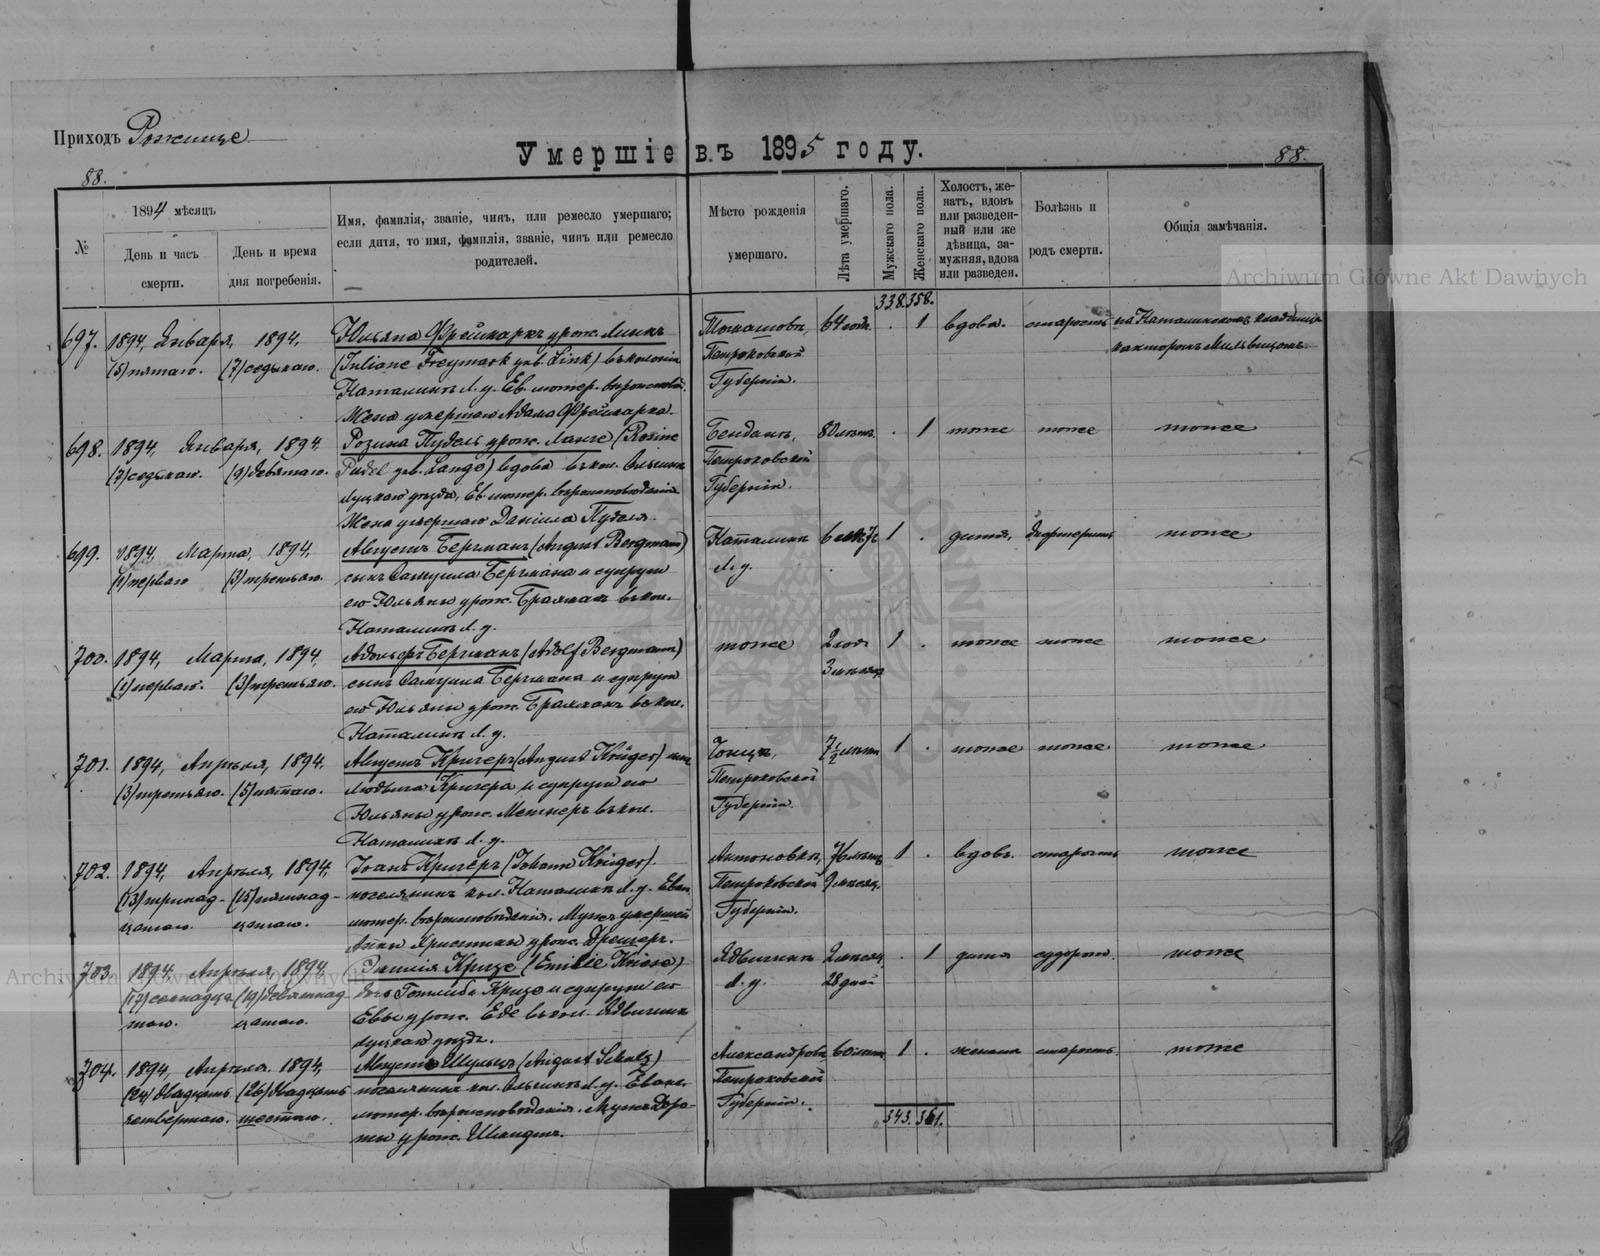 Приходъ Рожище
Умершіе въ 1895 году.
88.
88.
№
1894 мѣсяцъ
День и часъ смерти.
День и время дня погребенія.
Имя, фамилія, званіе, чинъ, или ремесло умершаго;
если дитя, то имя, фамилія, званіе, чинъ или ремесло
родителей.
Мѣсто рожденія
умершаго.
Лѣта умершаго.
Мужскаго пола.
Женскаго пола.
Холостъ, же-
натъ, вдовъ
или разведен-
ный или же
дѣвица, за-
мужняя, вдова
или разведен.
Болѣзнь и
родъ смерти.
Общія замѣчанія.
338. 358.
697. 1894, Января, 1894, Юльяна Фреймаркъ урож. Линкъ
(5) пятаго. (7) седьмаго. (Juliane Freymark geb. Link) въ колоніи
Наталинъ Л. у. Ев. лютер.
Жена умершаго Адама Фреймарка.
Томашовъ, Петроковской Губерніи. 64 года . 1 вдова. старость на Наталинскомъ кладбищѣ
698. 1894, Января, 1894, Розина Пудель урож. Ланге (Rosine
(7) седьмаго. (9) девятаго. Pudel geb. Lange) вдова въ кол.
Луцкаго уѣзда, Ев. лютер. вѣроисповѣданія
Жена умершаго Даніила Пуделя.
Петроковской Губерніи. 80 лѣтъ . 1 тоже тоже тоже
699. 1894, Марта, 1894, Августъ Бергманъ (August Bergmann)
(1) перваго (3) третьяго. сынъ Самуила Бергмана и супруги
его Юльяны урож. въ кол.
Наталинъ Л. у.
Наталинъ Л. у. 6 1 . дитя, дифтеритъ тоже
700. 1894, Марта, 1894, Адольфъ Бергманъ (Adolf Bergmann)
(1) перваго. (3) третьяго. сынъ Самуила Бергмана и супруги
его Юльяны урож. въ кол.
Наталинъ Л. у.
тоже 2 года 3 мѣсяца 1 . тоже тоже тоже
701. 1894, Апрѣля, 1894, Августъ Кригеръ (August Krüger) сынъ
(3) третьяго. (5) пятаго. Людвига Кригера и супруги его
Юльяны урож. въ кол.
Наталинъ Л. у.
Петроковской Губерніи. 7 1/2 лѣтъ 1 . тоже тоже тоже
702. 1894, Апрѣля, 1894, Іоанъ Кригеръ (Johann Krüger).
(13) тринад- (15) пятнад- поселянинъ кол. Наталинъ Л. у. Еван.
цатаго. цатаго. лютер. вѣроисповѣданія. Мужъ умершей
Анны Христины урож. Дрешеръ.
Антоновка, Петроковской Губерніи. 76 лѣтъ 9 мѣсяц. 1 . вдовъ. старость тоже
703. 1894, Апрѣля, 1894, Эмилія Кризе (Emilie Kriese)
(17) семнадца- (19) девятнад- дочь Готлиба Кризе и супруги его
таго. цатаго. Евы урож. въ кол. Ядвигинъ
Луцкаго уѣзда.
Ядвигинъ Л. у. 2 мѣсяц. 28 дней . 1 дитя судорги. тоже
704. 1894, Апрѣля. 1894, Августъ Шульцъ (August Schulz)
(24) двадцать (26) двадцать поселянинъ кол. Л. у. Еванг.
четвертаго. шестаго. лютер. вѣроисповѣданія. Мужъ Доро-
теи урож.
Александровъ, Петроковской Губерніи. 60 лѣтъ 1 . женатъ старость тоже
343. 361.
Archiwum Główne Akt Dawnych
Archiwum Główne Akt Dawnych